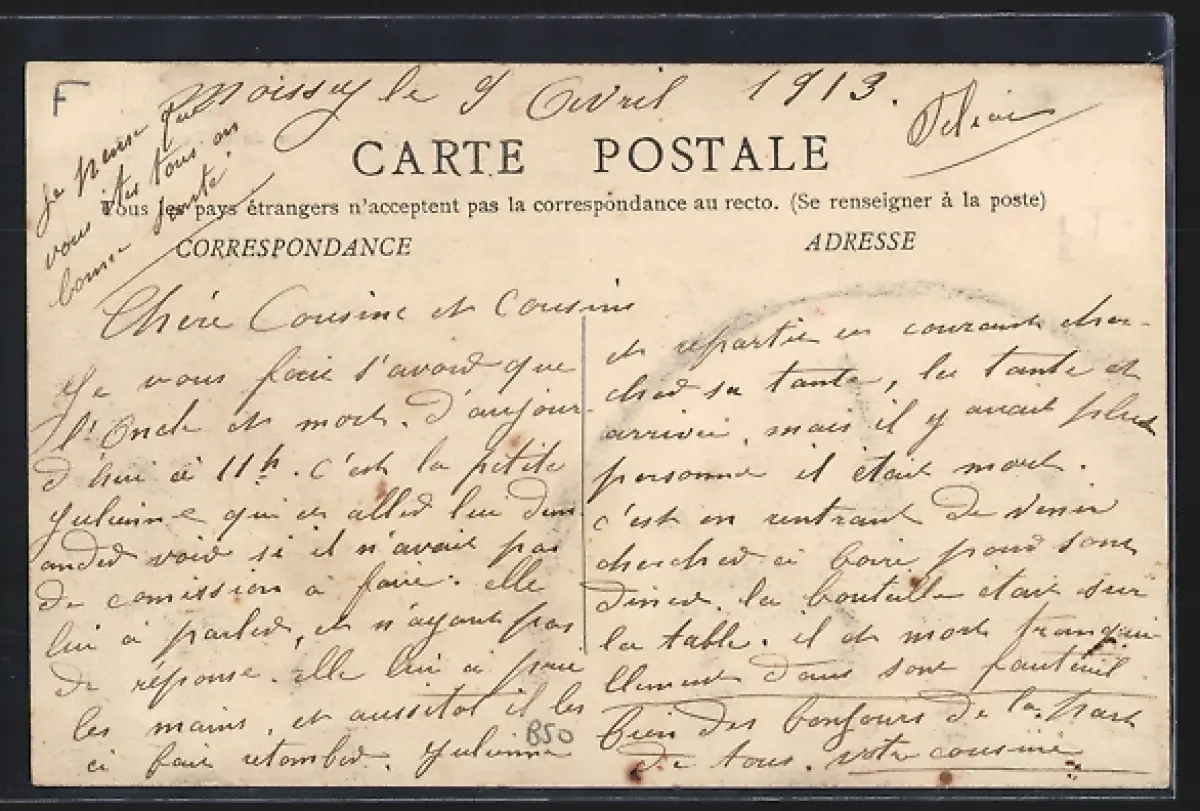 F
Moissey le 9 Avril 1913.
Je pense que
vous êtes tous en
bonne santé.
CARTE POSTALE
Tous les pays étrangers n'acceptent pas la correspondance au recto. (Se renseigner à la poste)
CORRESPONDANCE
ADRESSE
Chère Cousine et Cousins
Je vous faie s'avoir que
l'Oncle et mort. D'aujour-
d'hui à 11h. c'est la petite
Julienne qui es aller lui dem
ander voir si il n'avait pas
de comission à faire. elle
lui à parler, et n'ayant pas
de réponse. elle lui à prie
les mains, et aussitot il les
à faie retomber. Julienne
et repartie en courant cher-
cher sa tante, la tante et
arrivée, mais il y avait plus
personne il était mort.
c'est en rentrant de venir
chercher à boire pour sont
diner. la bouteille était sur
la table. il et mort tranqui-
llement dans sont fauteuil.
bien des bonjours de la part
de tous. votre cousine
B50